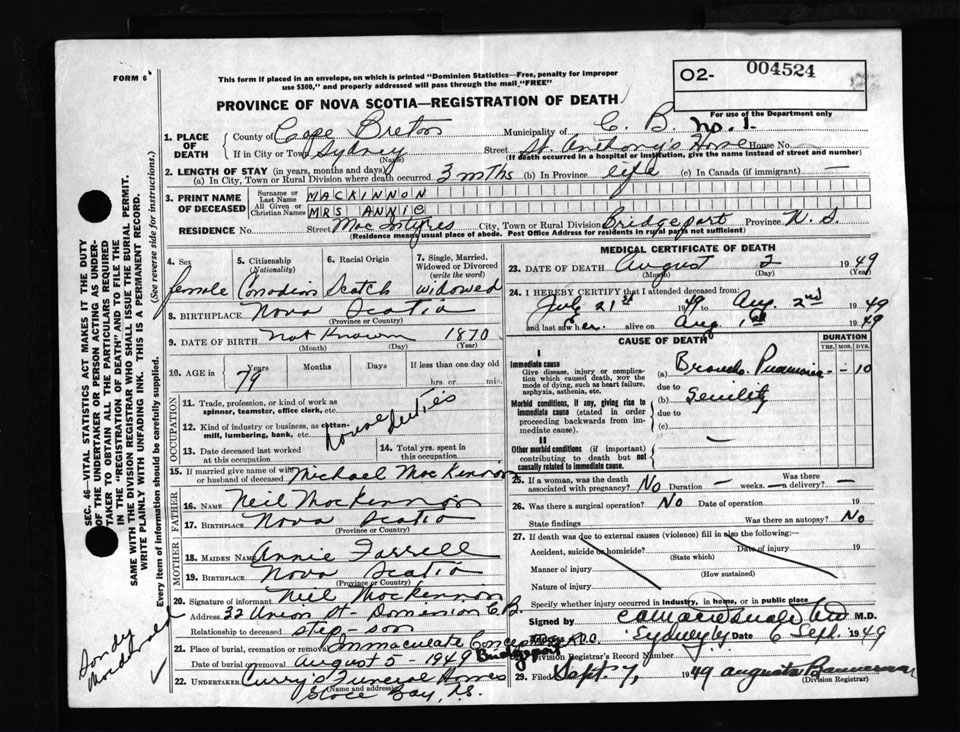 FORM 6
This form if placed in an envelope, on which is printed "Dominion Statistics—Free, penalty for improper
use $300," and properly addressed will pass through the mail "FREE"
O2- 004524
For use of the Department only
PROVINCE OF NOVA SCOTIA—REGISTRATION OF DEATH
1. PLACE OF DEATH
County of Cape Breton Municipality of C. B. No. 1.
If in City or Town Sydney (Name) Street St. Anthony's Home House No.
(If death occurred in a hospital or institution, give the name instead of street and number)
2. LENGTH OF STAY (in years, months and days)
(a) In City, Town or Rural Division where death occurred 3 mths (b) In Province life (c) In Canada (if immigrant) —
3. PRINT NAME OF DECEASED
Surname or Last Name MACKINNON
All Given or Christian Names MRS ANNIE
RESIDENCE No. Street MacIntyres City, Town or Rural Division Bridgeport Province N. S.
(Residence means usual place of abode. Post Office Address for residents in rural parts not sufficient)
4. Sex female
5. Citizenship (Nationality) Canadian
6. Racial Origin Scotch
7. Single, Married, Widowed or Divorced (write the word) widowed
8. BIRTHPLACE Nova Scotia
(Province or Country)
9. DATE OF BIRTH Not Known 1870
(Month) (Day) (Year)
10. AGE in Years 79 Months Days If less than one day
hrs. or min.
OCCUPATION
11. Trade, profession, or kind of work as
spinner, teamster, office clerk, etc.
12. Kind of industry or business, as cotton-
mill, lumbering, bank, etc.
House Duties
13. Date deceased last worked
at this occupation
14. Total yrs. spent in
this occupation
15. If married give name of wife
or husband of deceased Michael MacKinnon
FATHER
16. NAME Neil MacKinnon
17. BIRTHPLACE Nova Scotia
(Province or Country)
MOTHER
18. MAIDEN NAME Annie Farrell
19. BIRTHPLACE Nova Scotia
(Province or Country)
20. Signature of informant Neil MacKinnon
Address 32 Union St - Dominion C.B.
Relationship to deceased step-son
21. Place of burial, cremation or removal Immaculate Conception Bridgeport
Date of burial (removal) August 5 - 1949
22. UNDERTAKER Curry's Funeral Homes
(Name and address)
Glace Bay, N.S.
MEDICAL CERTIFICATE OF DEATH
23. DATE OF DEATH August 2 1949
(Month) (Day) (Year)
24. I HEREBY CERTIFY that I attended deceased from:
July 21st 1949 to Aug. 2nd 1949
and last saw her alive on Aug 1st 1949
CAUSE OF DEATH
DURATION
YRS. MOS. DYS.
I
Immediate cause
Give disease, injury or complication
which caused death, not the
mode of dying, such as heart failure,
asphyxia, asthenia, etc.
(a) Broncho Pneumonia - - 10
due to
Morbid conditions, if any, giving rise to
immediate cause (stated in order
proceeding backwards from immediate
cause).
(b) Senility
due to
(c)
II
Other morbid conditions (if important)
contributing to death but not
causally related to immediate cause.
—
25. If a woman, was the death
associated with pregnancy? No Duration — weeks. Was there
a delivery? —
26. Was there a surgical operation? No Date of operation 19
State findings Was there an autopsy? No
27. If death was due to external causes (violence) fill in also the following:—
Accident, suicide or homicide? Date of injury 19
(State which)
Manner of injury
(How sustained)
Nature of injury
Specify whether injury occurred in Industry, in home, or in public place
Signed by M.D.
Address Sydney Date 6 Sept. 1949
28. Division Registrar's Record Number
29. Filed Sept. 7, 1949 Augusta Bannerman
(Division Registrar)
SEC. 46—VITAL STATISTICS ACT MAKES IT THE DUTY
OF THE UNDERTAKER OR PERSON ACTING AS UNDERTAKER
TO OBTAIN ALL THE PARTICULARS REQUIRED
IN THE "REGISTRATION OF DEATH" AND TO FILE THE
SAME WITH THE DIVISION REGISTRAR WHO SHALL ISSUE THE BURIAL PERMIT.
WRITE PLAINLY WITH UNFADING INK. THIS IS A PERMANENT RECORD.
Every item of information should be carefully supplied. (See reverse side for instructions.)